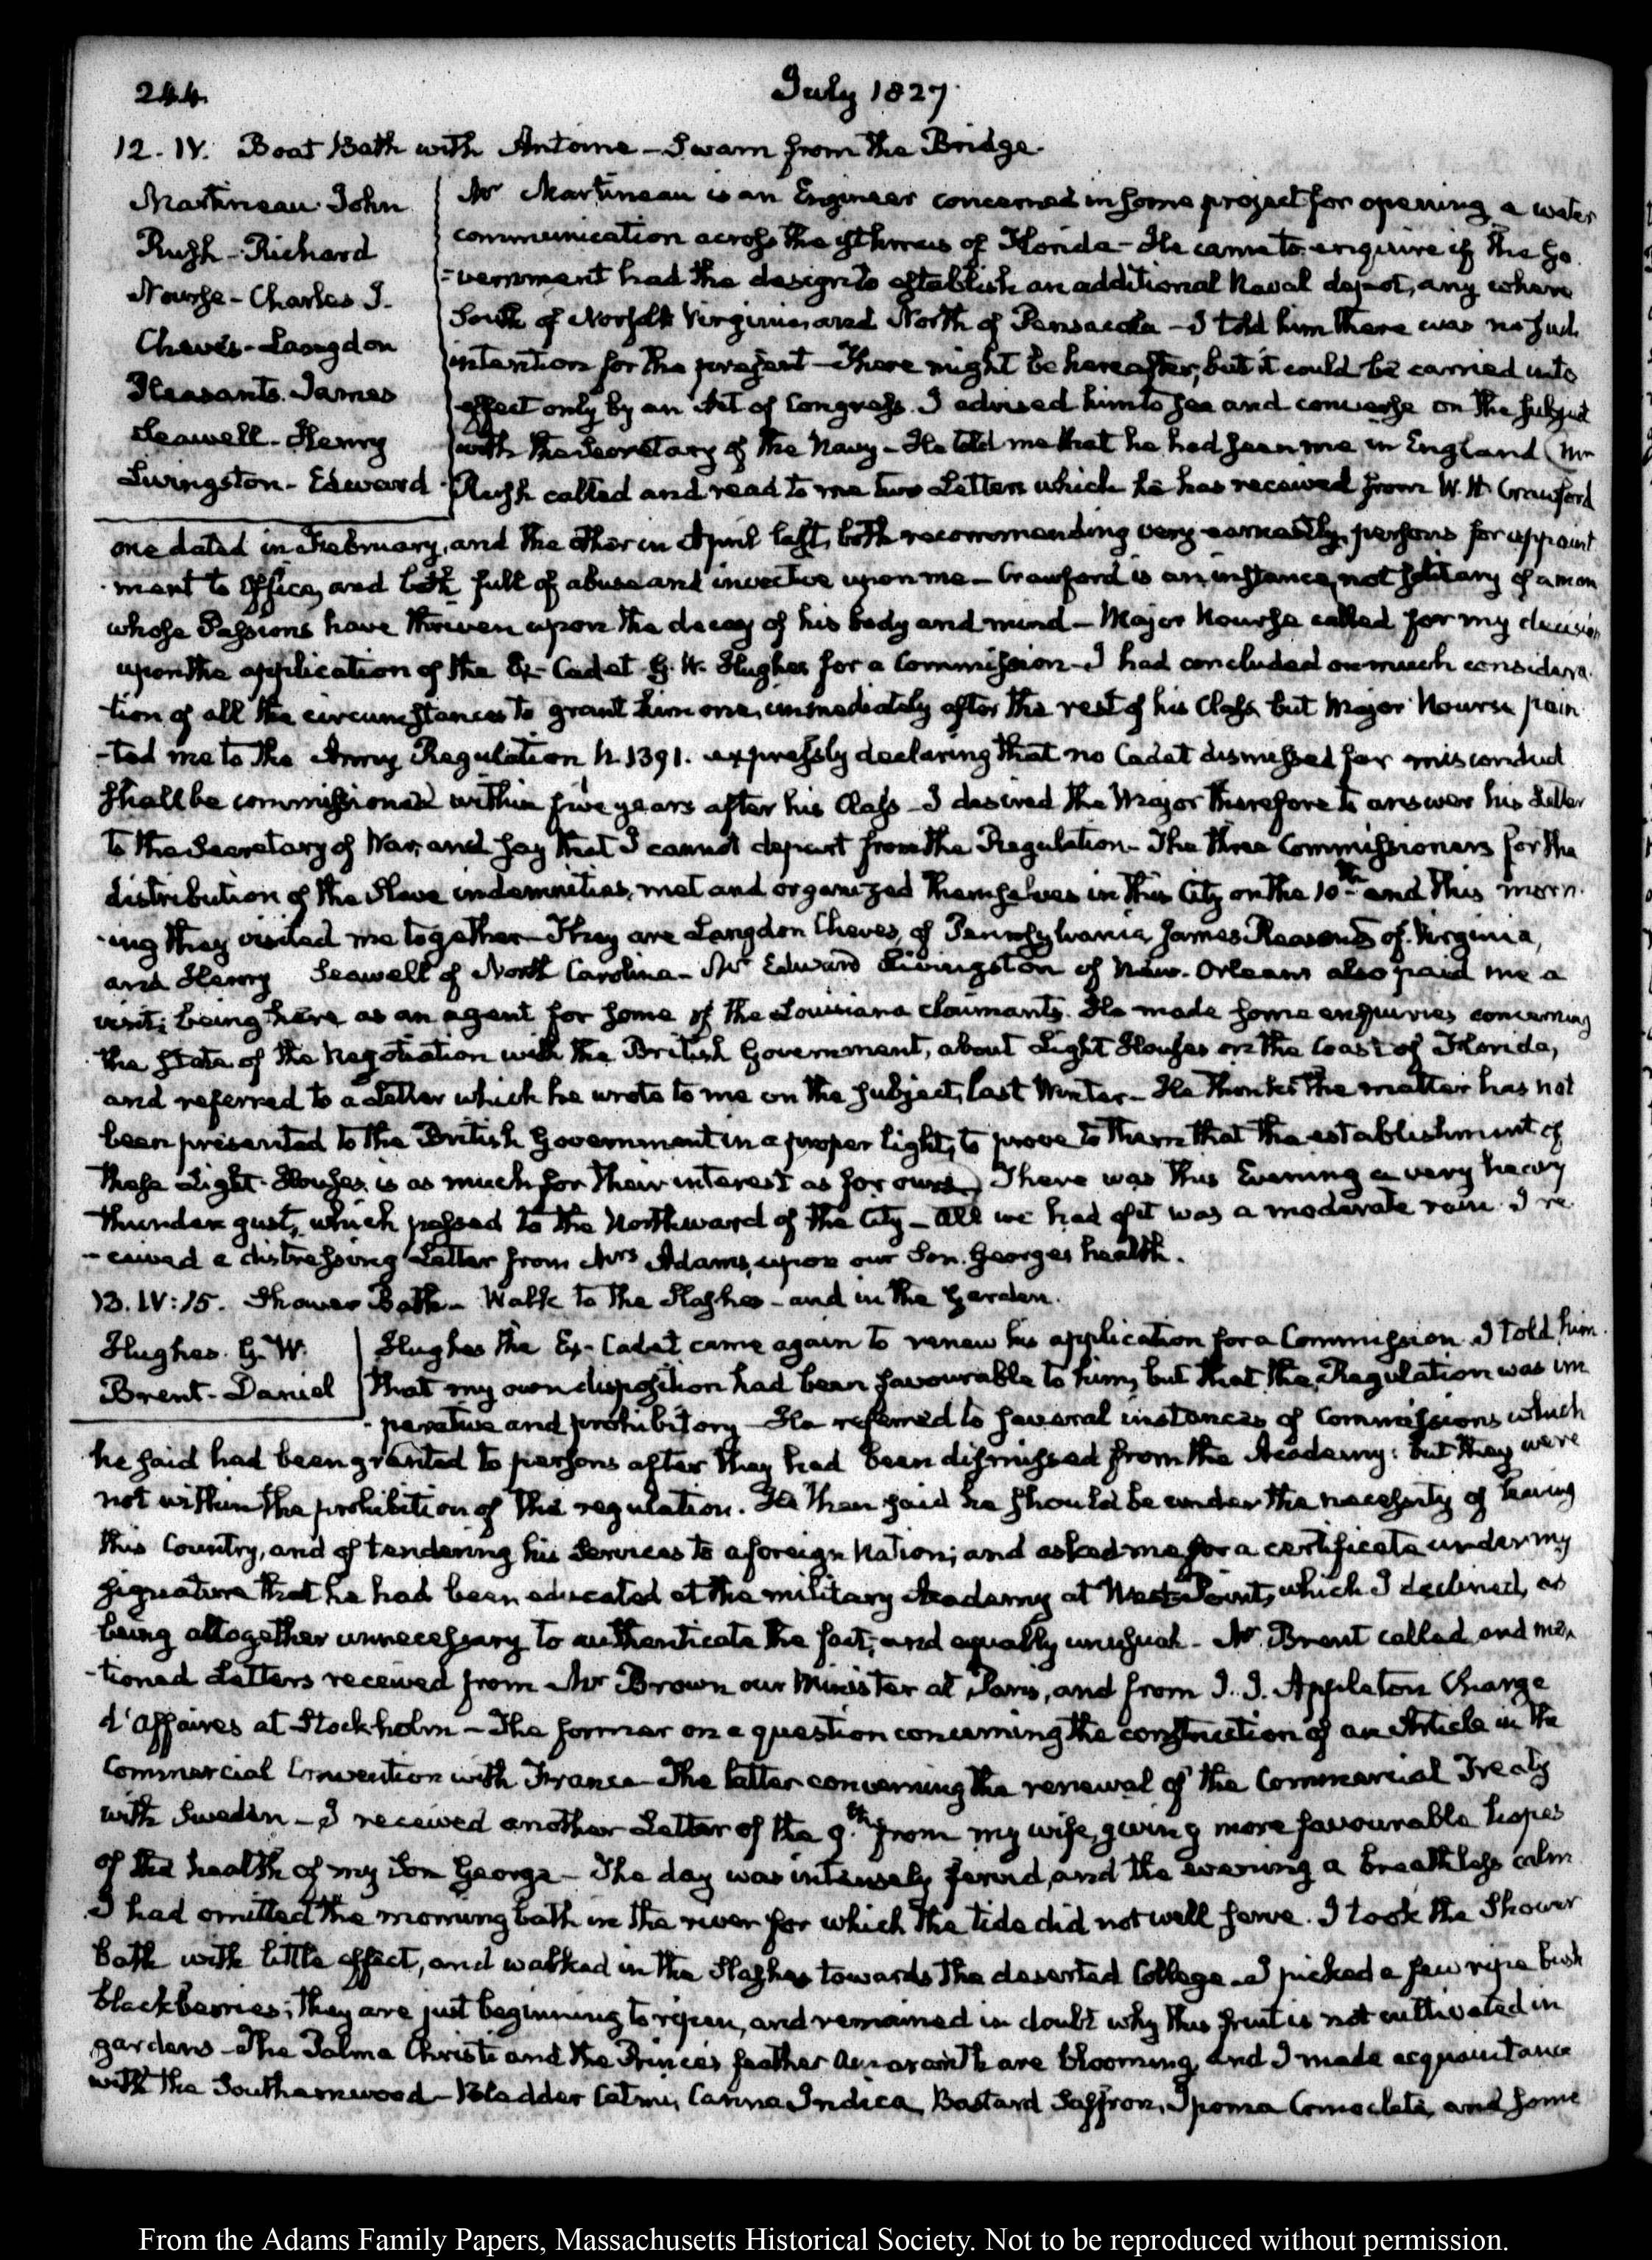 244.
July 1827.
12. IV. Boat Bath with Antoine – Swam from the Bridge.
Martineau. John
Rush – Richard
Nourse – Charles J.
Cheves – Langdon
Pleasants. James
Seawell – Henry
Livingston – Edward
Mr Martineau is an Engineer concerned in some project for opening a water
communication across the isthmus of Florida – He came to enquire if the Go
=vernment had the design to establish an additional Naval depot, any where
South of Norfolk Virginia, and North of Pensacola – I told him there was no such
intention for the present – There might be hereafter, but it could be carried into
effect only by an Act of Congress. I advised him to see and converse on the subject
with the Secretary of the Navy – He told me that he had seen me in England (Mr
Rush called and read to me two Letters which he has received from W. H. Crawford
one dated in February, and the other in April last, both recommending very earnestly, persons for appoint
-ment to Office, and both full of abuse and invective upon me – Crawford is an instance, not solitary of a man
whose Passions have thriven upon the decay of his body and mind – Major Nourse called for my decision
upon the application of the Ex-Cadet G. W. Hughes for a Commission – I had concluded on much considera
-tion of all the circumstances to grant him one, immediately after the rest of his Class but Major Nourse poin
-ted me to the Army Regulation N. 1391. expressly declaring that no Cadet dismissed for misconduct
shall be commissioned within five years after his Class – I desired the Major therefore to answer his Letter
to the Secretary of War, and say that I cannot depart from the Regulation – The three Commissioners for the
distribution of the Slave indemnities, met and organized themselves in this City on the 10th and this morn
-ing they visited me together – They are Langdon Cheves, of Pennsylvania, James Pleasants of Virginia,
and Henry Seawell of North Carolina – Mr Edward Livingston of New-Orleans also paid me a
visit; being here as an agent for some of the Louisiana claimants. He made some enquiries concerning
the state of the Negotiation with the British Government, about Light Houses on the Coast of Florida,
and referred to a Letter which he wrote to me on the subject, last Winter – He thinks the matter has not
been presented to the British Government in a proper light, to prove to them that the establishment of
these Light-Houses is as much for their interest as for ours) There was this Evening a very heavy
thunder gust, which passed to the Northward of the City – All we had of it was a moderate rain. I re
-ceived a distressing Letter from Mrs Adams, upon our Son. Georges health.
13. IV:15. Shower Bath – Walk to the Slashes – and in the Garden.
Hughes. G. W.
Brent – Daniel
Hughes the Ex-Cadet came again to renew his application for a Commission. I told him
that my own disposition had been favourable to him, but that the Regulation was im
-perative and prohibitory – He referred to several instances of Commissions which
he said had been granted to persons after they had been dismissed from the Academy: but they were
not within the prohibition of the regulation. He then said he should be under the necessity of leaving
this Country, and of tendering his Services to a foreign Nation; and asked me for a certificate under my
signature that he had been educated at the military Academy at West-Point, which I declined, as
being altogether unnecessary to authenticate the fact, and equally unusual – Mr Brent called, and men
-tioned Letters received from Mr Brown our Minister at Paris, and from J. J. Appleton Chargé
d'affaires at Stockholm – The former on a question concerning the construction of an Article in the
Commercial Convention with France – The latter concerning the renewal of the Commercial Treaty
with Sweden – I received another Letter of the 9th from my wife, giving more favourable hopes
of the health of my Son George – The day was intensely fervid, and the evening a breathless calm
I had omitted the morning bath in the river for which the tide did not well serve. I took the Shower
Bath with little effect, and walked in the Slashes towards the deserted College – I picked a few ripe bush
blackberries; they are just beginning to ripen, and remained in doubt why this fruit is not cultivated in
gardens – The Palma Christi and the Prince's feather Amaranth are blooming, and I made acquaintance
with the Southernwood – Bladder Catmi, Canna Indica, Bastard Saffron, Ipoma Comoclita, and some
From the Adams Family Papers, Massachusetts Historical Society. Not to be reproduced without permission.